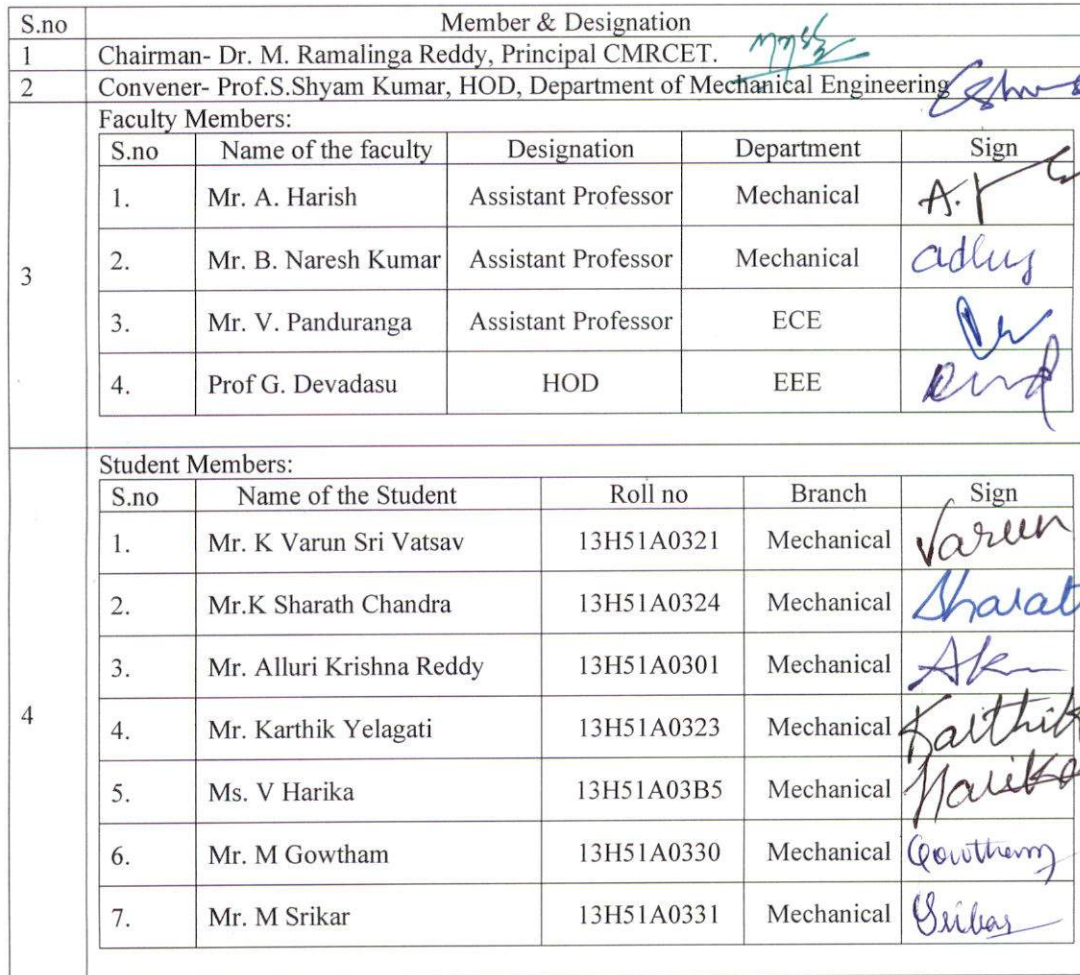 S.no Member & Designation
1 Chairman- Dr. M. Ramalinga Reddy, Principal CMRCET.
2 Convener- Prof.S.Shyam Kumar, HOD, Department of Mechanical Engineering
3 Faculty Members:
S.no Name of the faculty Designation Department Sign
1. Mr. A. Harish Assistant Professor Mechanical
2. Mr. B. Naresh Kumar Assistant Professor Mechanical
3. Mr. V. Panduranga Assistant Professor ECE
4. Prof G. Devadasu HOD EEE
4 Student Members:
S.no Name of the Student Roll no Branch Sign
1. Mr. K Varun Sri Vatsav 13H51A0321 Mechanical Varun
2. Mr.K Sharath Chandra 13H51A0324 Mechanical Sharat
3. Mr. Alluri Krishna Reddy 13H51A0301 Mechanical
4. Mr. Karthik Yelagati 13H51A0323 Mechanical Karthik
5. Ms. V Harika 13H51A03B5 Mechanical Harika
6. Mr. M Gowtham 13H51A0330 Mechanical Gowtham
7. Mr. M Srikar 13H51A0331 Mechanical Srikar